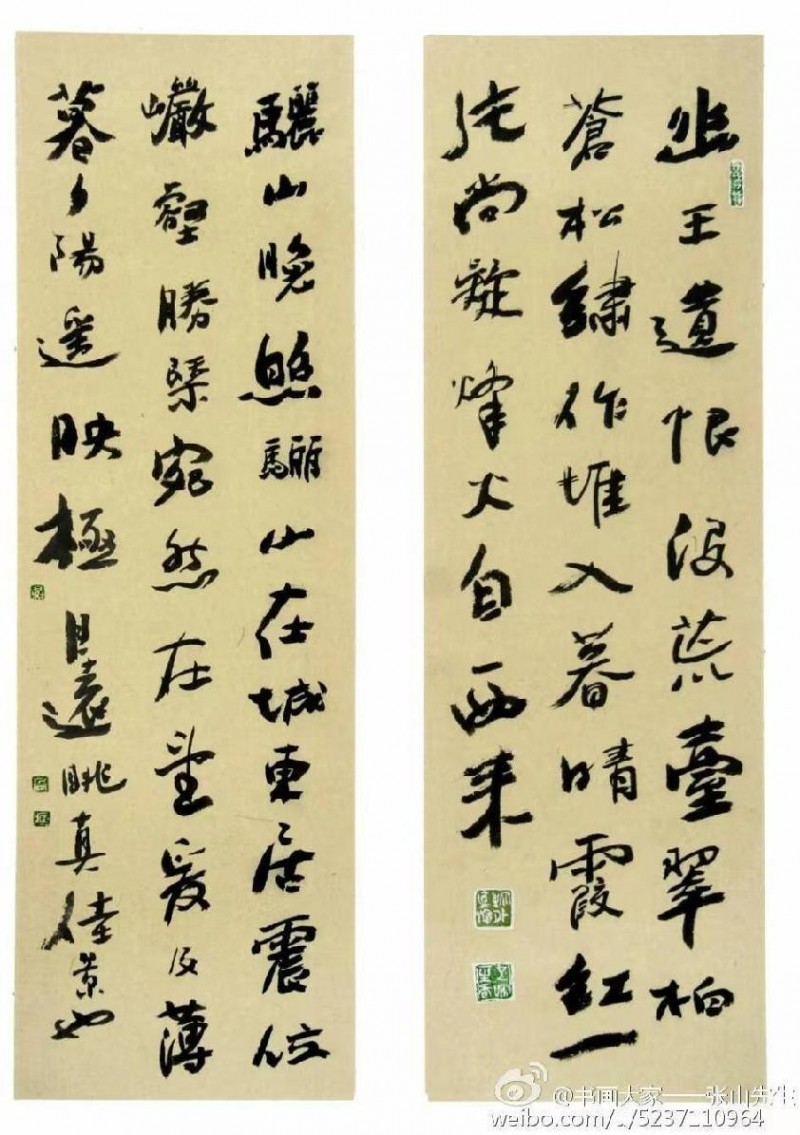 幽王遺恨没荒臺翠柏
蒼松繡作堆入暮晴霞紅一
片尚疑烽火自西来
驪山晚照驪山在城東居震位
巖壑勝槩宛然在望爰及薄
暮夕陽遥映極目遠眺真佳景也
@书画大家——张山先生
weibo.com/../5237_10964